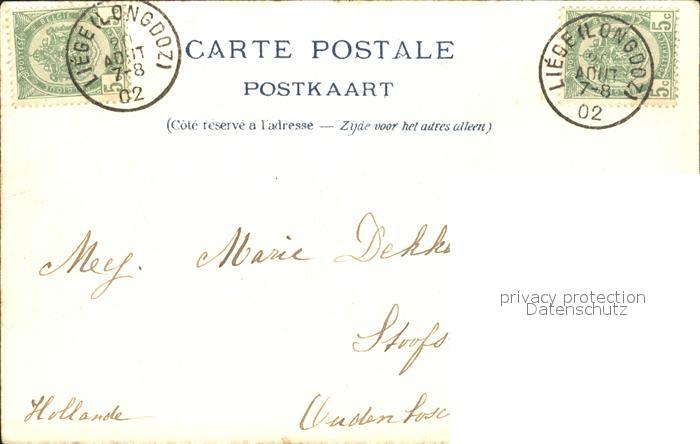 LIÉGE (LONGDOZ)
AOUT
7-8
02
BELGIE
5
CARTE POSTALE
POSTKAART
(Côté réservé a l'adresse — Zijde voor het adres alleen)
LIÉGE (LONGDOZ)
AOUT
7-8
02
5c
5c
Mej. Marie Dekk
Stoofs
Hollande Oudenbosc
privacy protection
Datenschutz